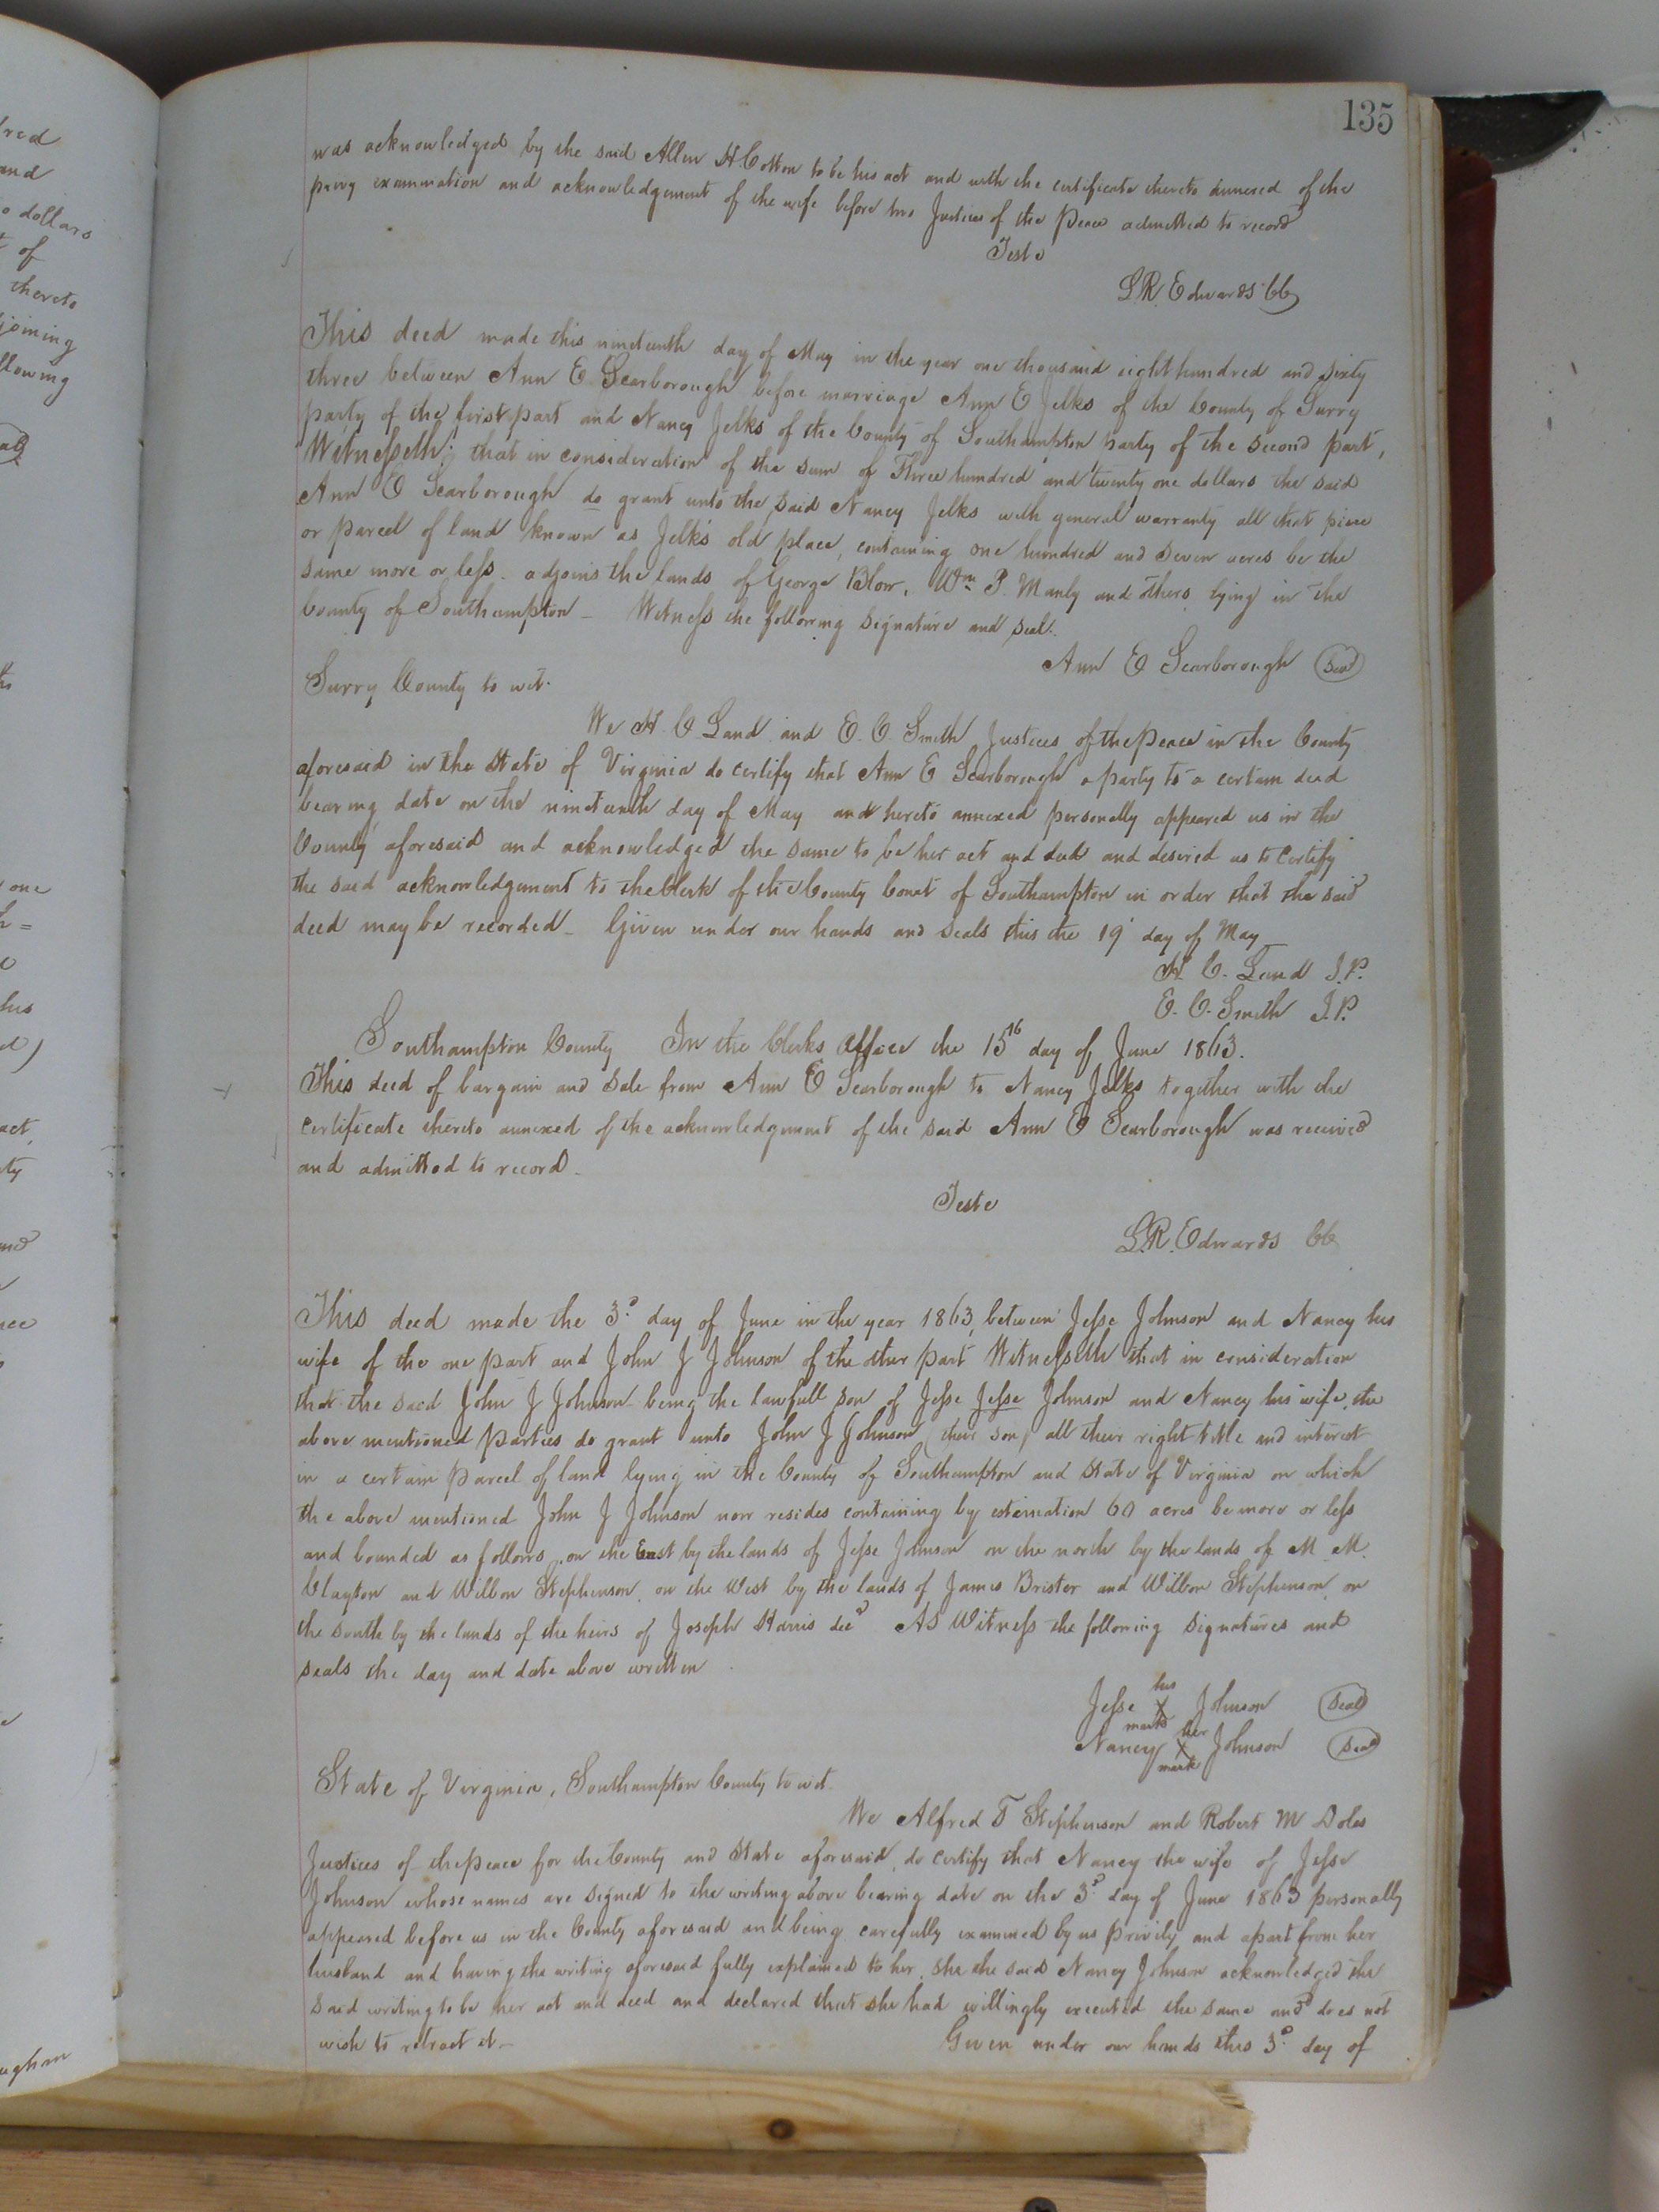 135
was acknowledged by the said Allen H Cotton to be his act and with the certificate thereto annexed of the
privy examination and acknowledgement of the wife before two Justices of the Peace admitted to record
Teste
L.R. Edwards CC
This deed made this nineteenth day of May in the year one thousand eight hundred and sixty
three between Ann E Scarborough before marriage Ann E Jelks of the County of Surry
party of the first part and Nancy Jelks of the County of Southampton party of the second part,
Witnesseth; that in consideration of the sum of Three hundred and twenty one dollars the said
Ann E Scarborough do grant unto the said Nancy Jelks with general warranty all that piece
or parcel of land known as Jelk's old place, containing one hundred and seven acres be the
same more or less. adjoins the lands of George Blow, Wm P. Manly and others lying in the
County of Southampton - Witness the following signature and seal.
Ann E Scarborough (Seal)
Surry County to wit.
We H. C Land and E. C. Smith Justices of the peace in the County
aforesaid in the State of Virginia do certify that Ann E Scarborough a party to a certain deed
bearing date on the nineteenth day of May and hereto annexed personally appeared us in the
County aforesaid and acknowledged the same to be her act and deed and desired us to certify
the said acknowledgement to the Clerk of the County Court of Southampton in order that the said
deed may be recorded - Given under our hands and seals this the 19 day of May
H. C. Land J.P.
E. C. Smith J.P.
Southampton County In the Clerks Office the 15th day of June 1863.
This deed of bargain and sale from Ann E Scarborough to Nancy Jelks together with the
certificate thereto annexed of the acknowledgement of the said Ann E Scarborough was received
and admitted to record -
Teste
L.R. Edwards CC
This deed made the 3d day of June in the year 1863, between Jesse Johnson and Nancy his
wife of the one part and John J Johnson of the other part Witnesseth that in consideration
that the said John J Johnson being the lawfull son of Jesse Jesse Johnson and Nancy his wife, the
above mentioned Parties do grant unto John J Johnson (their son) all their right title and interest
in a certain parcel of land lying in the County of Southampton and State of Virginia on which
the above mentioned John J Johnson now resides containing by estimation 60 acres be more or less
and bounded as follows, on the East by the lands of Jesse Johnson on the north by the lands of M. M.
Clayton and Wilbon Stephenson, on the West by the lands of James Brister and Wilbon Stephenson, on
the south by the lands of the heirs of Joseph Harris decd As Witness the following signatures and
seals the day and date above written.
Jesse his X mark Johnson (Seal)
Nancy her X mark Johnson (Seal)
State of Virginia, Southampton County to wit.
We Alfred T Stephenson and Robert M Doles
Justices of the peace for the County and State aforesaid, do certify that Nancy the wife of Jesse
Johnson whose names are signed to the writing above bearing date on the 3d day of June 1863 personally
appeared before us in the County aforesaid and being carefully examined by us privily and apart from her
husband and having the writing aforesaid fully explained to her, she the said Nancy Johnson acknowledged the
said writing to be her act and deed and declared that she had willingly executed the same and does not
wish to retract it - Given under our hands this 3d day of